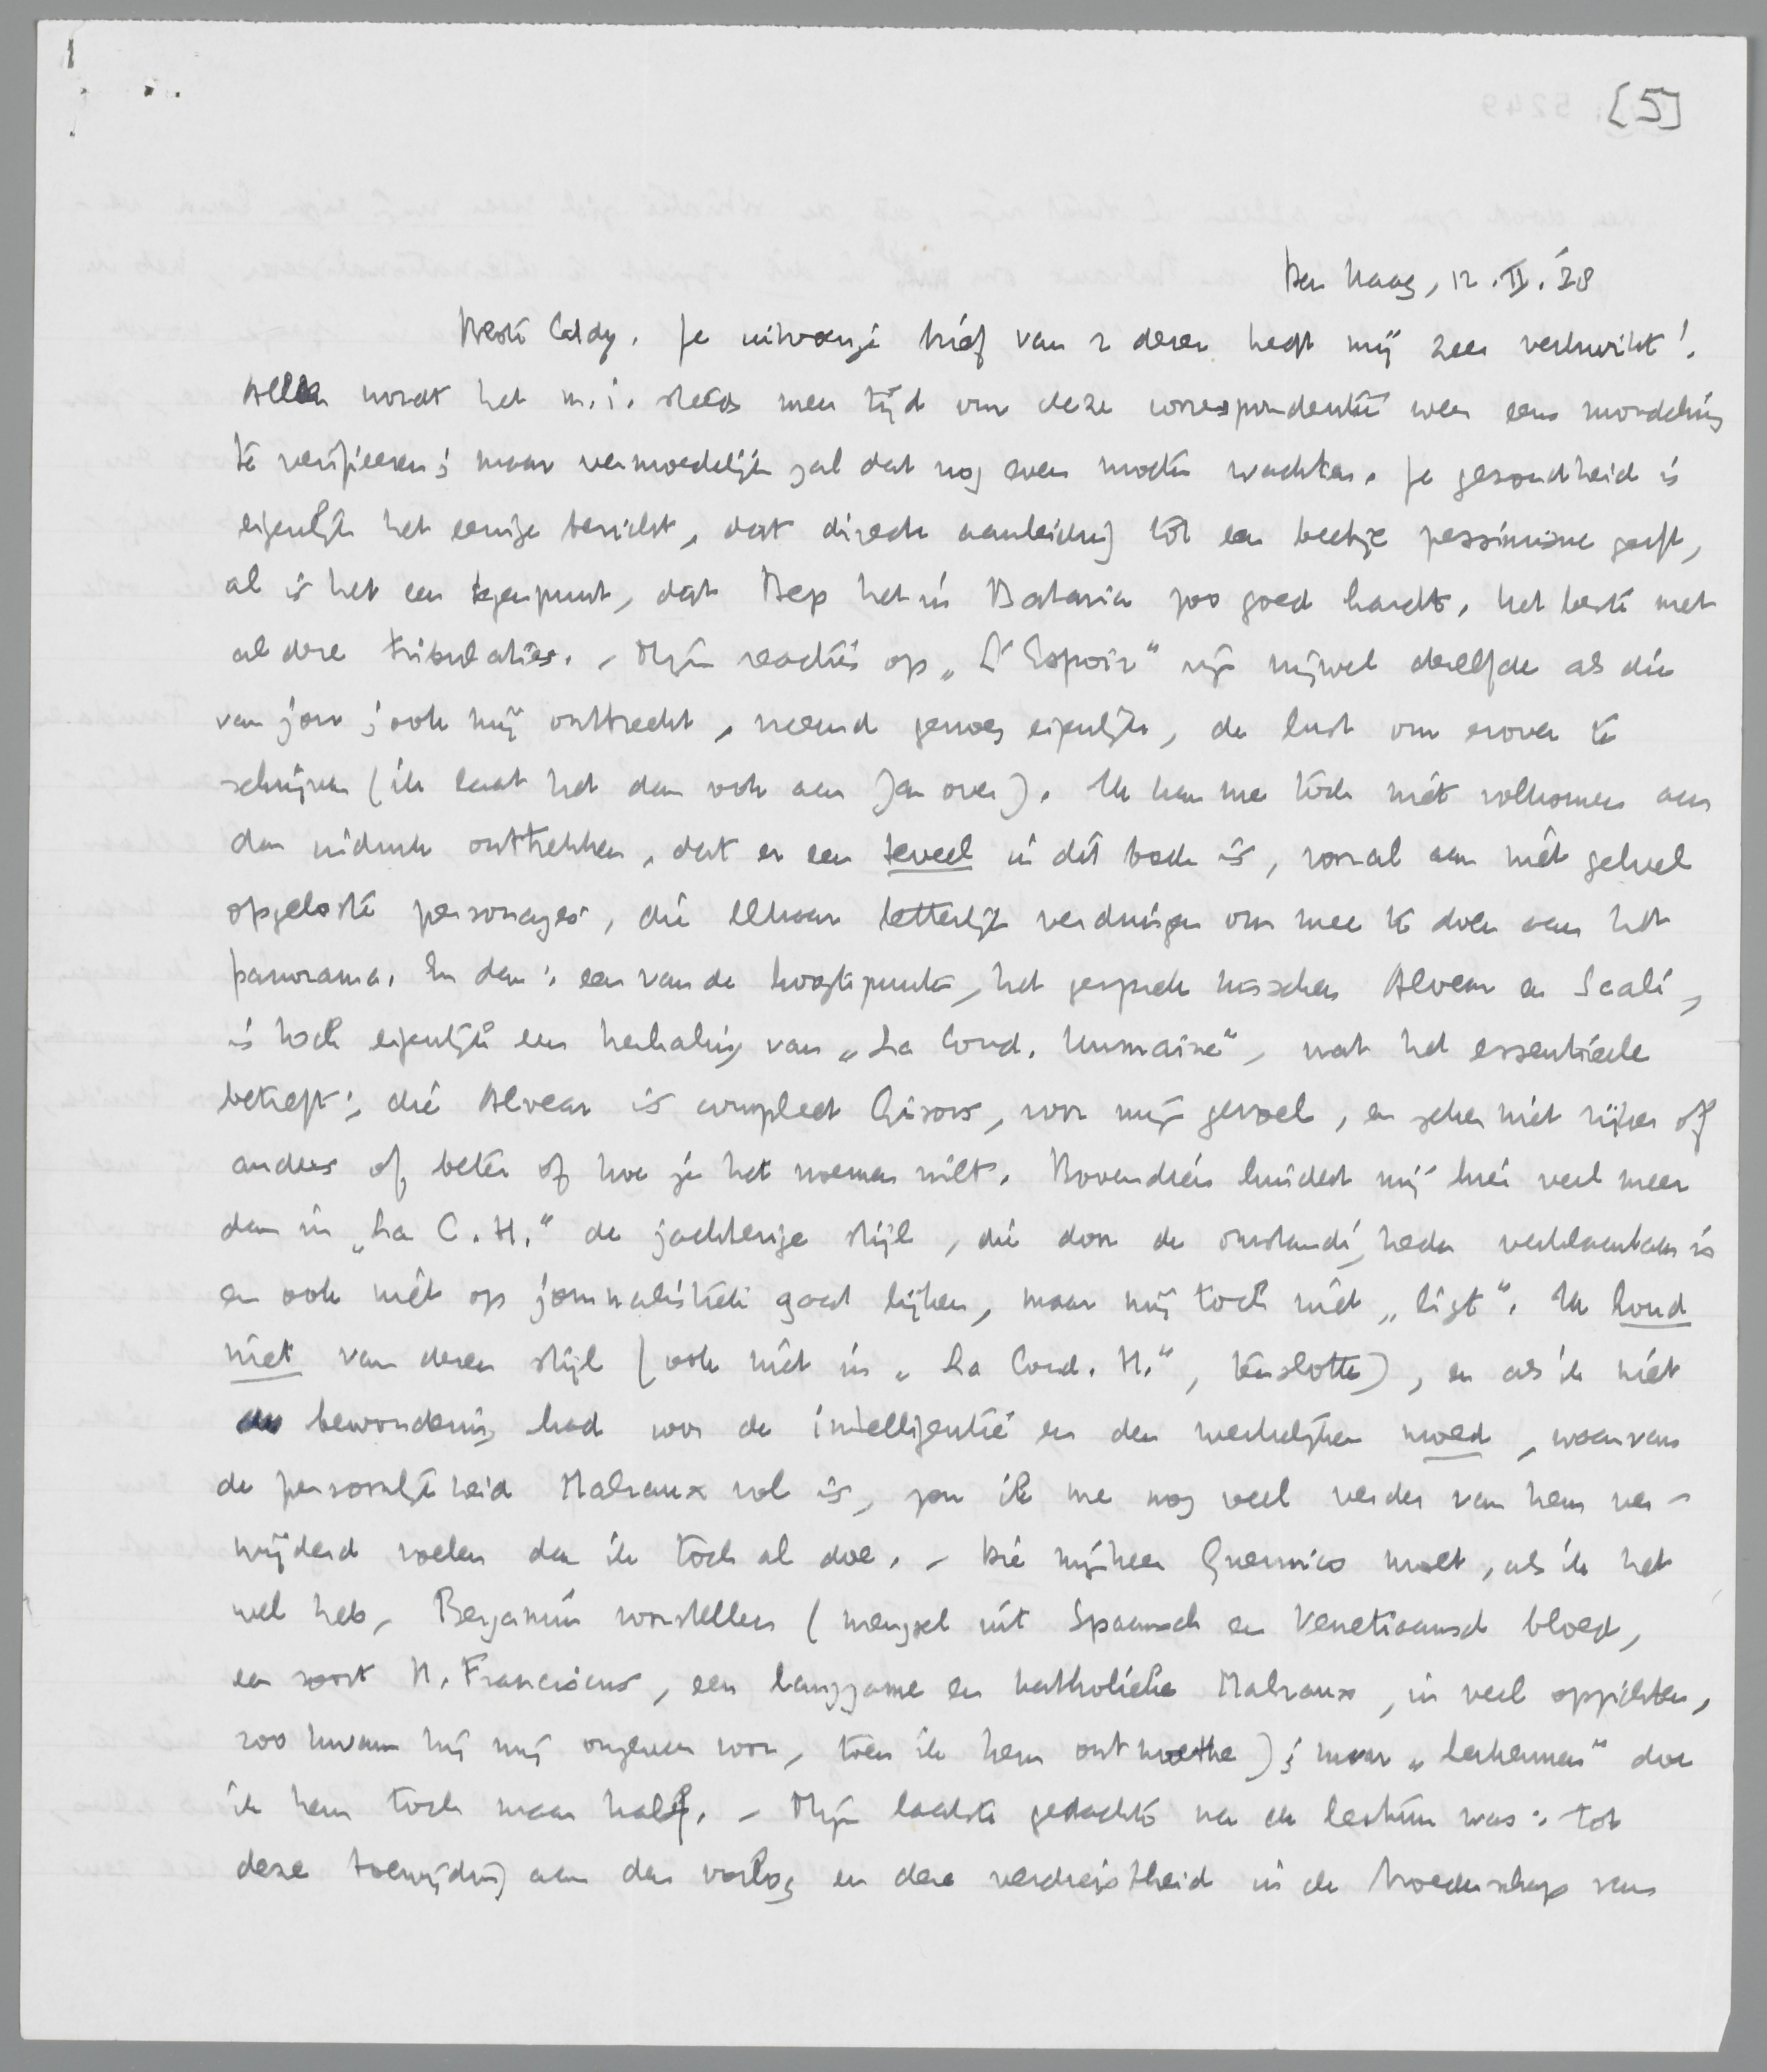 [5]
Den Haag, 12.II.'38
Beste Eddy. Je uitvoerige brief van 2 dezer heeft mij zeer verkwikt!
Alleen wordt het m.i. steeds meer tijd om deze correspondentie weer eens mondeling
te verifieeren; maar vermoedelijk zal dat nog even moeten wachten. Je gezondheid is
eigenlijk het eenige bericht, dat directe aanleiding tot een beetje pessimisme geeft,
al is het een tegenpunt, dat Bep het in Batavia zoo goed houdt. Het beste met
al deze tribulaties. – Mijn reacties op „L'Espoir" zijn vrijwel dezelfde als die
van jou; ook mij ontbreekt, vreemd genoeg eigenlijk, de lust om erover te
schrijven (ik laat het dan ook aan Jan over). Ik kan me toch niet volkomen aan
den indruk onttrekken, dat er een teveel in dit boek is, vooral aan niet geheel
opgeloste personages, die elkaar letterlijk verdringen om mee te doen aan het
panorama. En dan: een van de hoogtepunten, het gesprek tusschen Alvear en Scali,
is toch eigenlijk een herhaling van „La Cond. Humaine", wat het essentieele
betreft; die Alvear is compleet Gisors, voor mijn gevoel, en zeker niet rijker of
anders of beter of hoe je het noemen wilt. Bovendien hindert mij hier veel meer
dan in „La C.H." de jachterige stijl, die door de omstandigheden verklaarbaar is
en ook niet op journalistiek gaat lijken, maar mij toch niet „ligt". Ik houd
niet van dezen stijl (ook niet in „La Cond. H.", tenslotte), en als ik niet
bewondering had voor de intelligentie en den werkelijken moed, waarvan
de persoonlijkheid Malraux vol is, zou ik me nog veel verder van hem ver-
wijderd voelen dan ik toch al doe. – Die mijnheer Guernico moet, als ik het
wel heb, Bergamín voorstellen (mengsel uit Spaansch en Venetiaansch bloed,
een soort H. Franciscus, een langzame en katholieke Malraux, in veel opzichten,
zoo kwam hij mij ongeveer voor, toen ik hem ontmoette); maar „herkennen" doe
ik hem toch maar half. – Mijn laatste gedachte na de lectuur was: tot
deze toewijding aan den oorlog en deze verdiepstheid in de broederschap van